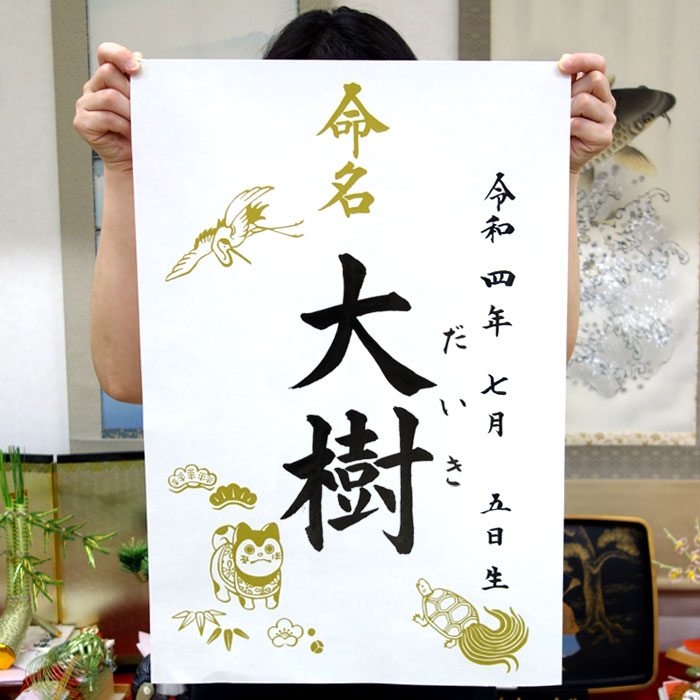 命名
令和四年七月五日生
だいき
大樹